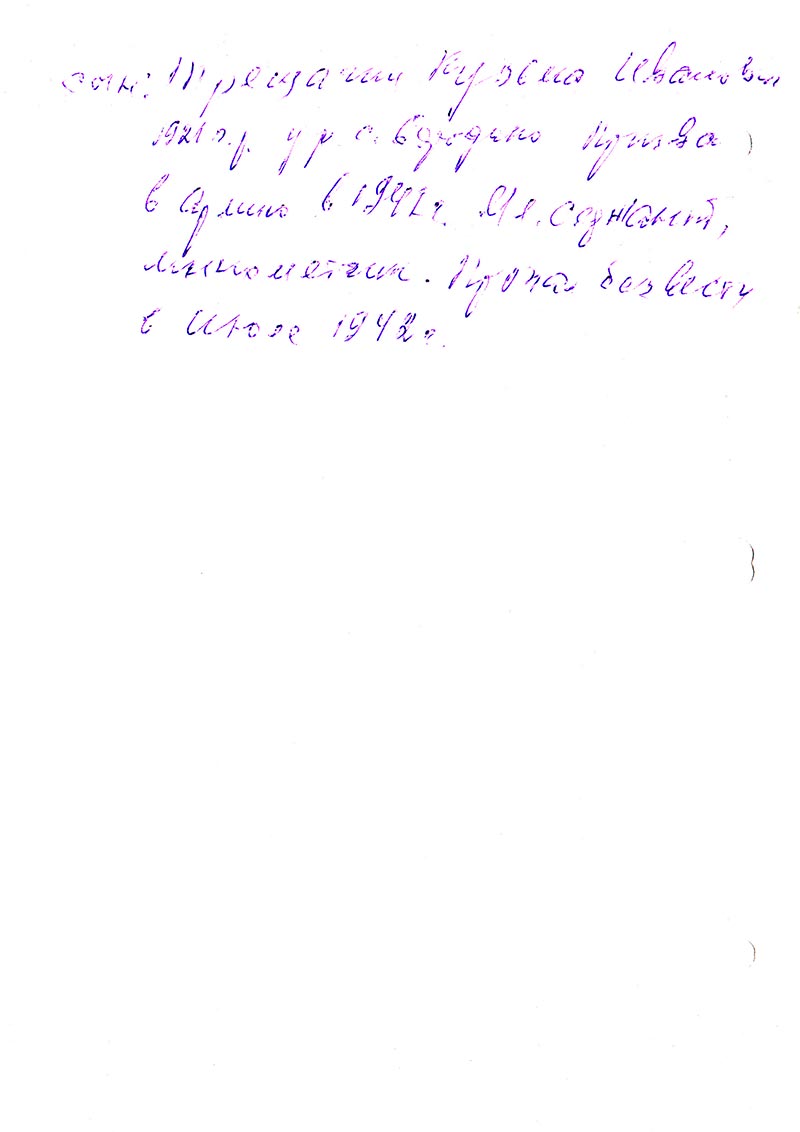 сын: Трещагин Кузьма Иванович
1921 г.р. ур. с. Призва
в армию в 1941 г. Мл. сержант,
минометчик. Пропал без вести
в июле 1942 г.